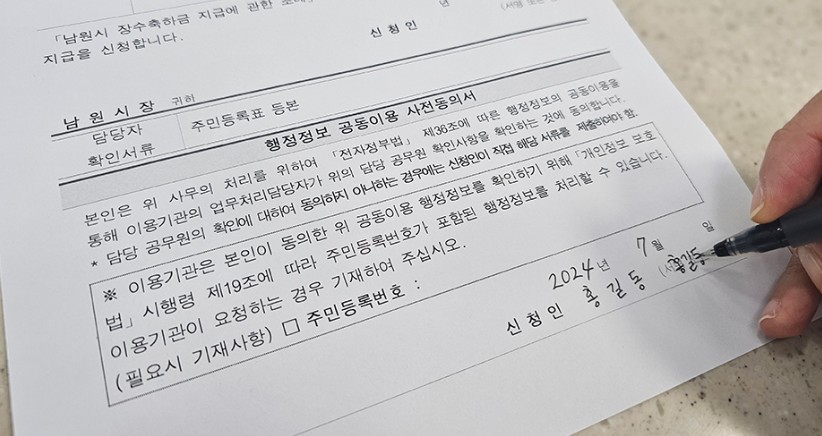 「남원시 장수축하금 지급에 관한 조례」
지급을 신청합니다.
년
신 청 인
(서명 또는
남 원 시 장 귀하
담당자
확인서류
주민등록표 등본
행정정보 공동이용 사전동의서
본인은 위 사무의 처리를 위하여 「전자정부법」 제36조에 따른 행정정보의 공동이용을
통해 이용기관의 업무처리담당자가 위의 담당 공무원 확인사항을 확인하는 것에 동의합니다.
* 담당 공무원의 확인에 대하여 동의하지 아니하는 경우에는 신청인이 직접 해당 서류를 제출하여야 함.
※ 이용기관은 본인이 동의한 위 공동이용 행정정보를 확인하기 위해 「개인정보 보호
법」 시행령 제19조에 따라 주민등록번호가 포함된 행정정보를 처리할 수 있습니다.
이용기관이 요청하는 경우 기재하여 주십시오.
(필요시 기재사항) □ 주민등록번호 :
2024년 7월 일
신 청 인 홍 길 동 (서 홍길동